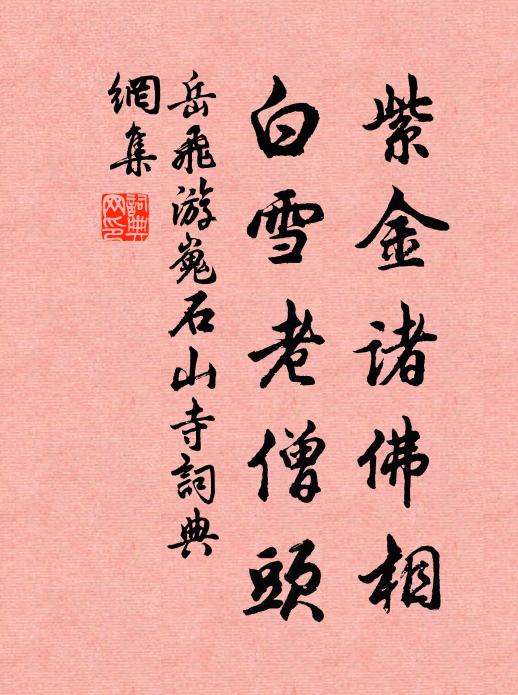 紫金諸佛相
白雪老僧頭
岳飛游嵬石山寺詞典
網集
詞典
网印